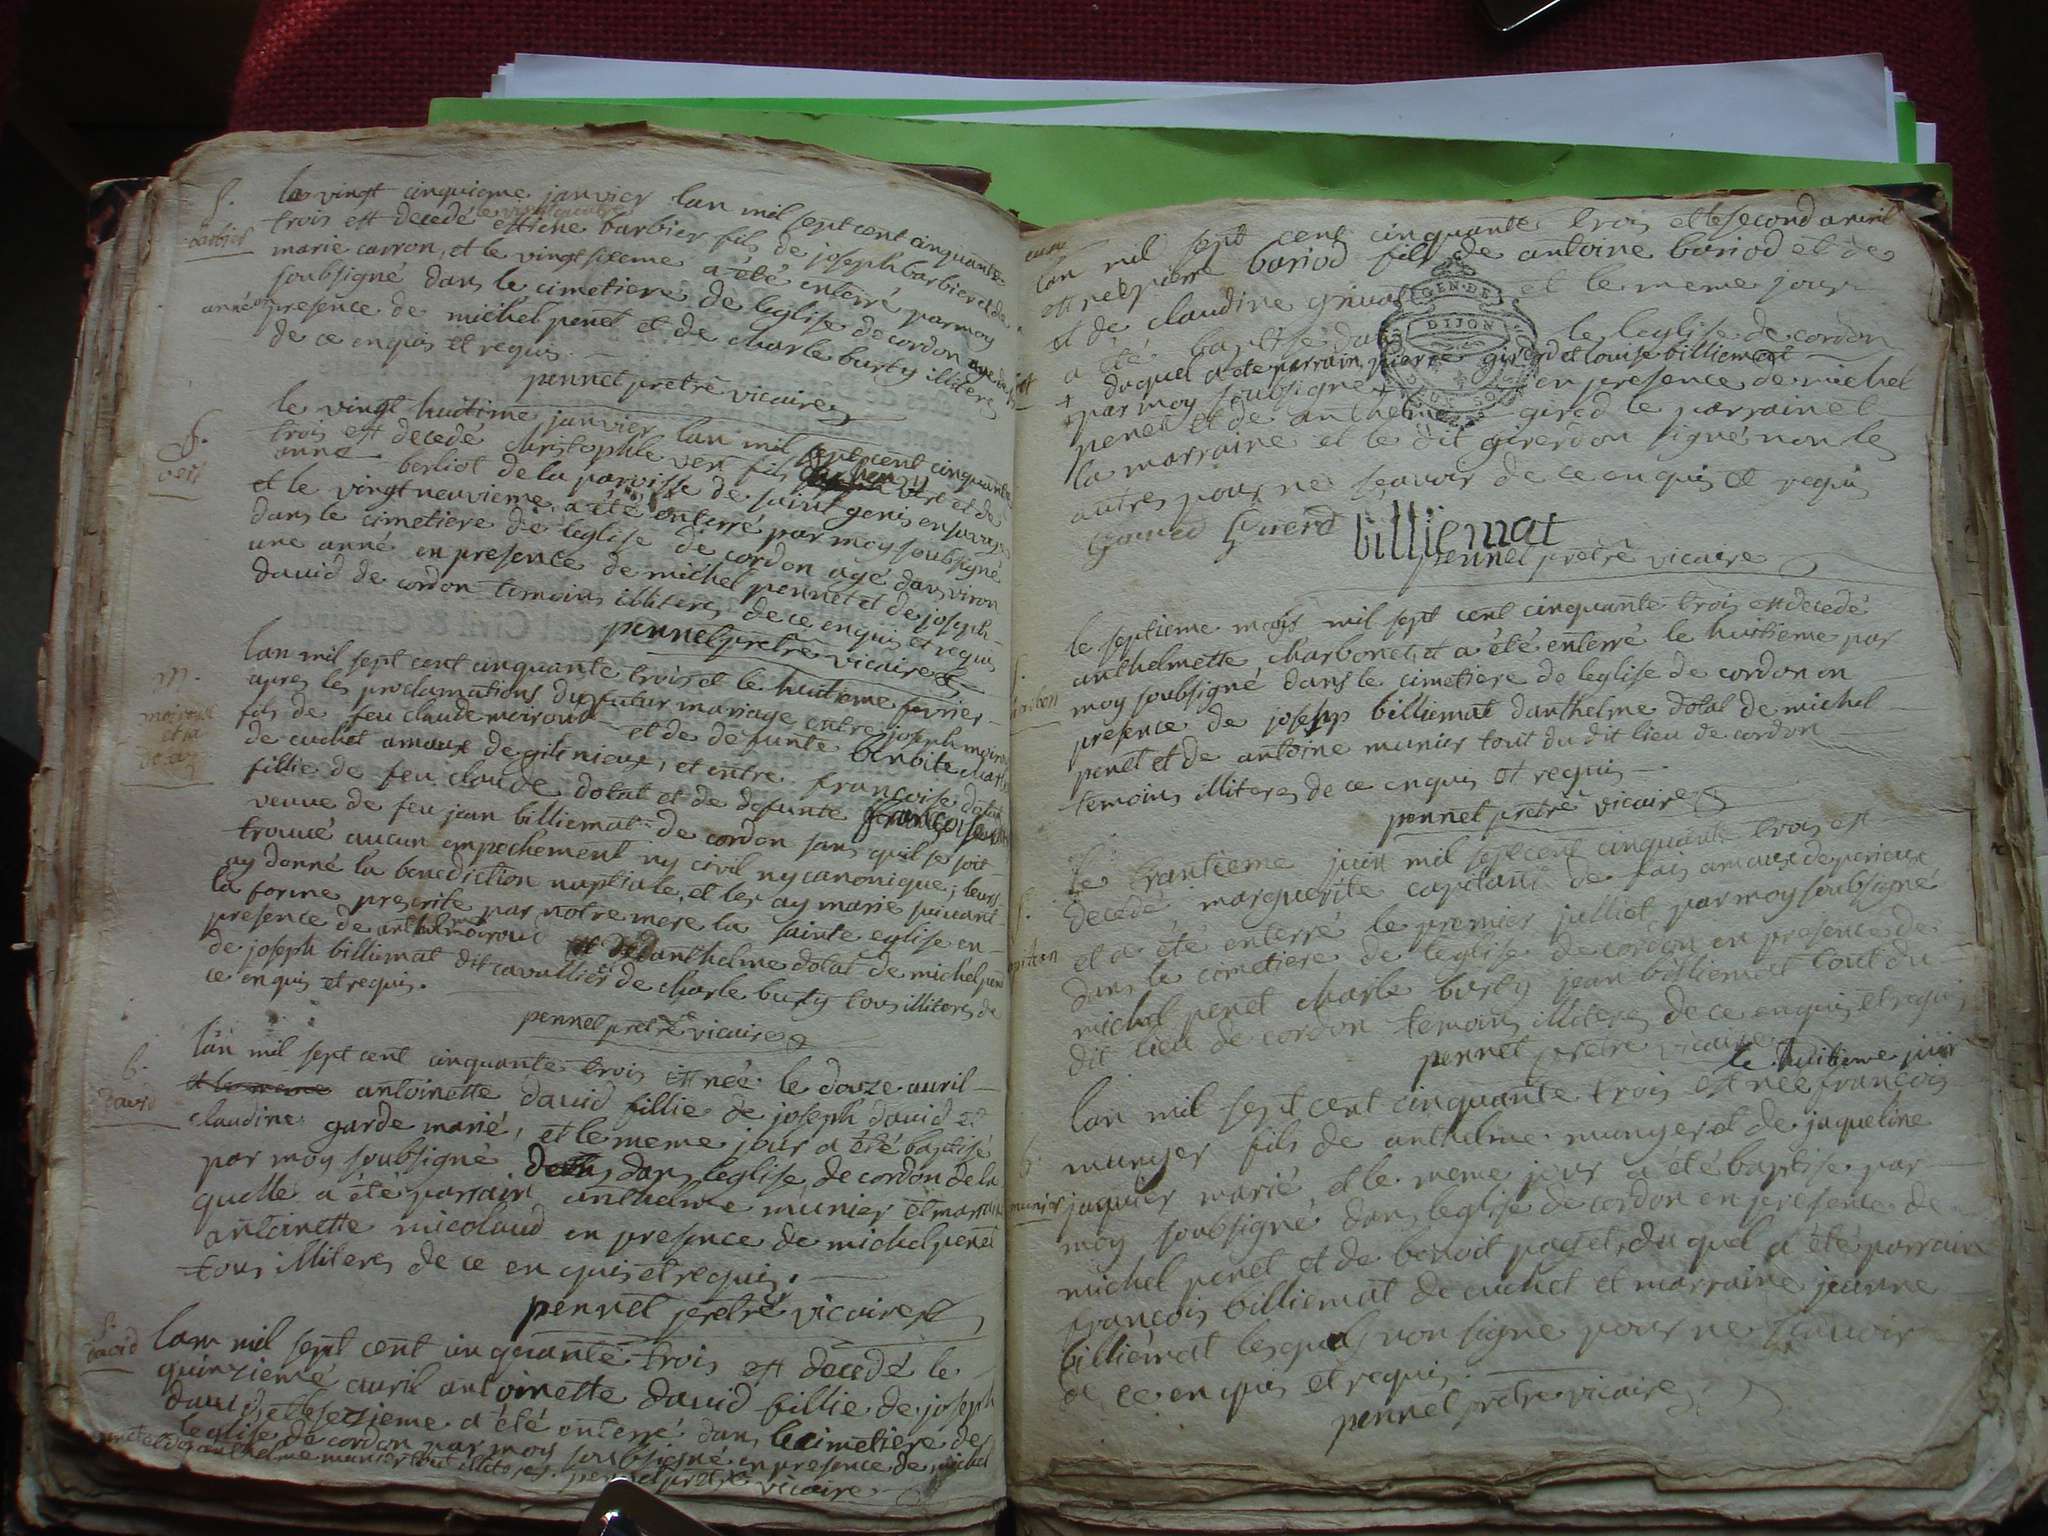 S.
barbier
le vingt cinquieme janvier lan mil sept cent cinquante
trois est decedé le vingt quatre estiene barbier fils de joseph barbier et de
marie carron, et le vingt sixeme a été enterré par moy
soubsigné dans le cimetiere de leglise de cordon age
presence de michel penet et de charle burty illiteres
de ce enquis et requis
pennet pretre vicaire
S.
vert
le vingt huitime janvier lan mil sept cent cinquante
trois est decedé christophle vert fils et de
anne berliot de la paroisse de saint genis en savoye
et le vingt neuvieme a été enterré par moy soubsigné
dans le cimetiere de leglise de cordon agé danviron
une anné en presence de michel pennet et de joseph
david de cordon temoins illiteres de ce enquis et requis
pennet pretre vicaire
m.
moiroux
et la
dolat
lan mil sept cent cinquante trois et le huitieme fevrier
apres les proclamations du futur mariage entre joseph moiroux
fils de feu claude moiroux et de defunte benoite
de cuchet amaux de gilinieux, et entre francoise dolat
fillie de feu claude dolat et de defunte francoise
veuve de feu jean billiemat de cordon sans quil se soit
trouvé aucun empechement ny civil ny canonique, leurs
ay donné la benediction nuptiale, et les ay marié suivant
la forme prescrite par notre mere la sainte eglise en
presence de anthelme moiroux et de danthelme dolat de michel penet
de joseph billiemat dit cavallier de charle burty tous illiteres de
ce enquis et requis.
pennet pretre vicaire
b.
david
lan mil sept cent cinquante trois est née le douze avril
et le meme antoinette david fillie de joseph david et
claudine garde marié, et le meme jour a été baptisé
par moy soubsigné dans leglise de cordon de la
quelle a été parrain anthelme munier et marraine
antoinette micoland en presence de michel penet
tous illiteres de ce enquis et requis.
pennet pretre vicaire
S.
david
lan mil sept cent cinquante trois est decedé le
quinzieme avril antoinette david fillie de joseph
david, et le sezieme a été enterré dans le cimetiere de
leglise de cordon par moy soubsigné en presence de michel
penet et de anthelme munier tout illiteres. pennet pretre vicaire
lan mil sept cent cinquante trois et le second avril
est né pierre bariod fils de antoine bariod et de
et de claudine et le meme jour
a été baptisé dans le leglise de cordon
+ duquel a été parrain pierre girerd et louise billiemat
+ par moy soubsigné + en presence de michel
penet et de anthelme girerd le parrain et
la marraine et le dit girerd on signé non les
autres pour ne sçavoir de ce enquis et requis
girerd billiemat
pennet pretre vicaire
GEN. DE
DIJON
le septieme mars mil sept cent cinquante trois est decedé
anthelmette charbonet, et a été enterré le huitieme par
moy soubsigné dans le cimetiere de leglise de cordon en
presence de joseph billiemat danthelme dolat de michel
penet et de antoine munier tout du dit lieu de cordon
temoins illiteres de ce enquis et requis
pennet pretre vicaire
le trantieme juin mil sept cent cinquante trois est
decedé marguerite capitant de fais amaux de perieux
et a été enterré le premier julliet par moy soubsigné
dans le cimetiere de leglise de cordon en presence de
michel penet charle burty jean billiemat tout du
dit lieu de cordon temoins illiteres de ce enquis et requis
pennet pretre vicaire
le huitieme juin
b.
munier
lan mil sept cent cinquante trois est née francois
munyer fils de anthelme munyer et de jaqueline
jaquier marié, et le meme jour a été baptise par
moy soubsigné dans leglise de cordon en presence de
michel penet et de benoit paget, du quel a été parrain
francois billiemat de cuchet et marraine jeanne
billiemat lesquels non signe pour ne scavoir
de ce enquis et requis
pennet pretre vicaire